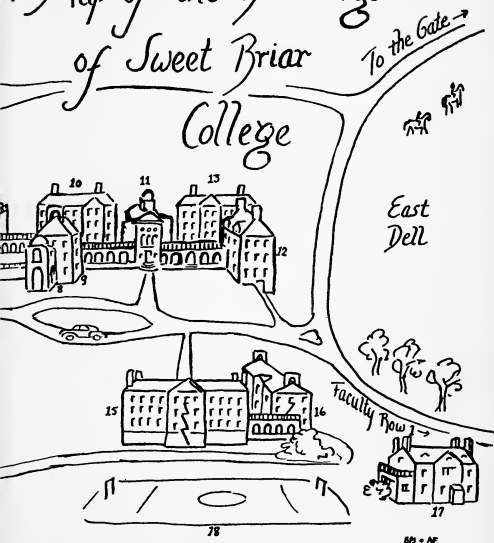 of the
of Sweet Briar
College
To the Gate →
East
Dell
10
11
13
12
8
9
15
16
Faculty Row →
17
18